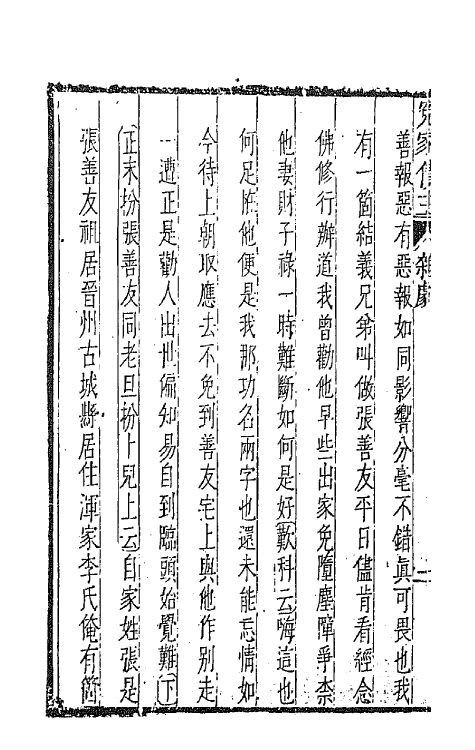 冤家債主 雜劇
善報惡有惡報如同影響分毫不錯眞可畏也我
有一箇結義兄弟叫做張善友平日儘肯看經念
佛修行辦道我曾勸他早些出家免墮塵障爭柰
他妻財子祿一時難斷如何是好(歎科云)嗨這也
何足恠他便是我那功名兩字也還未能忘情如
今待上朝取應去不免到善友宅上與他作別走
一遭正是勸人出世偏知易自到臨頭始覺難(下)
(正末扮張善友同老旦扮卜兒上云)自家姓張是
張善友祖居晉州古城縣居住渾家李氏俺有箇